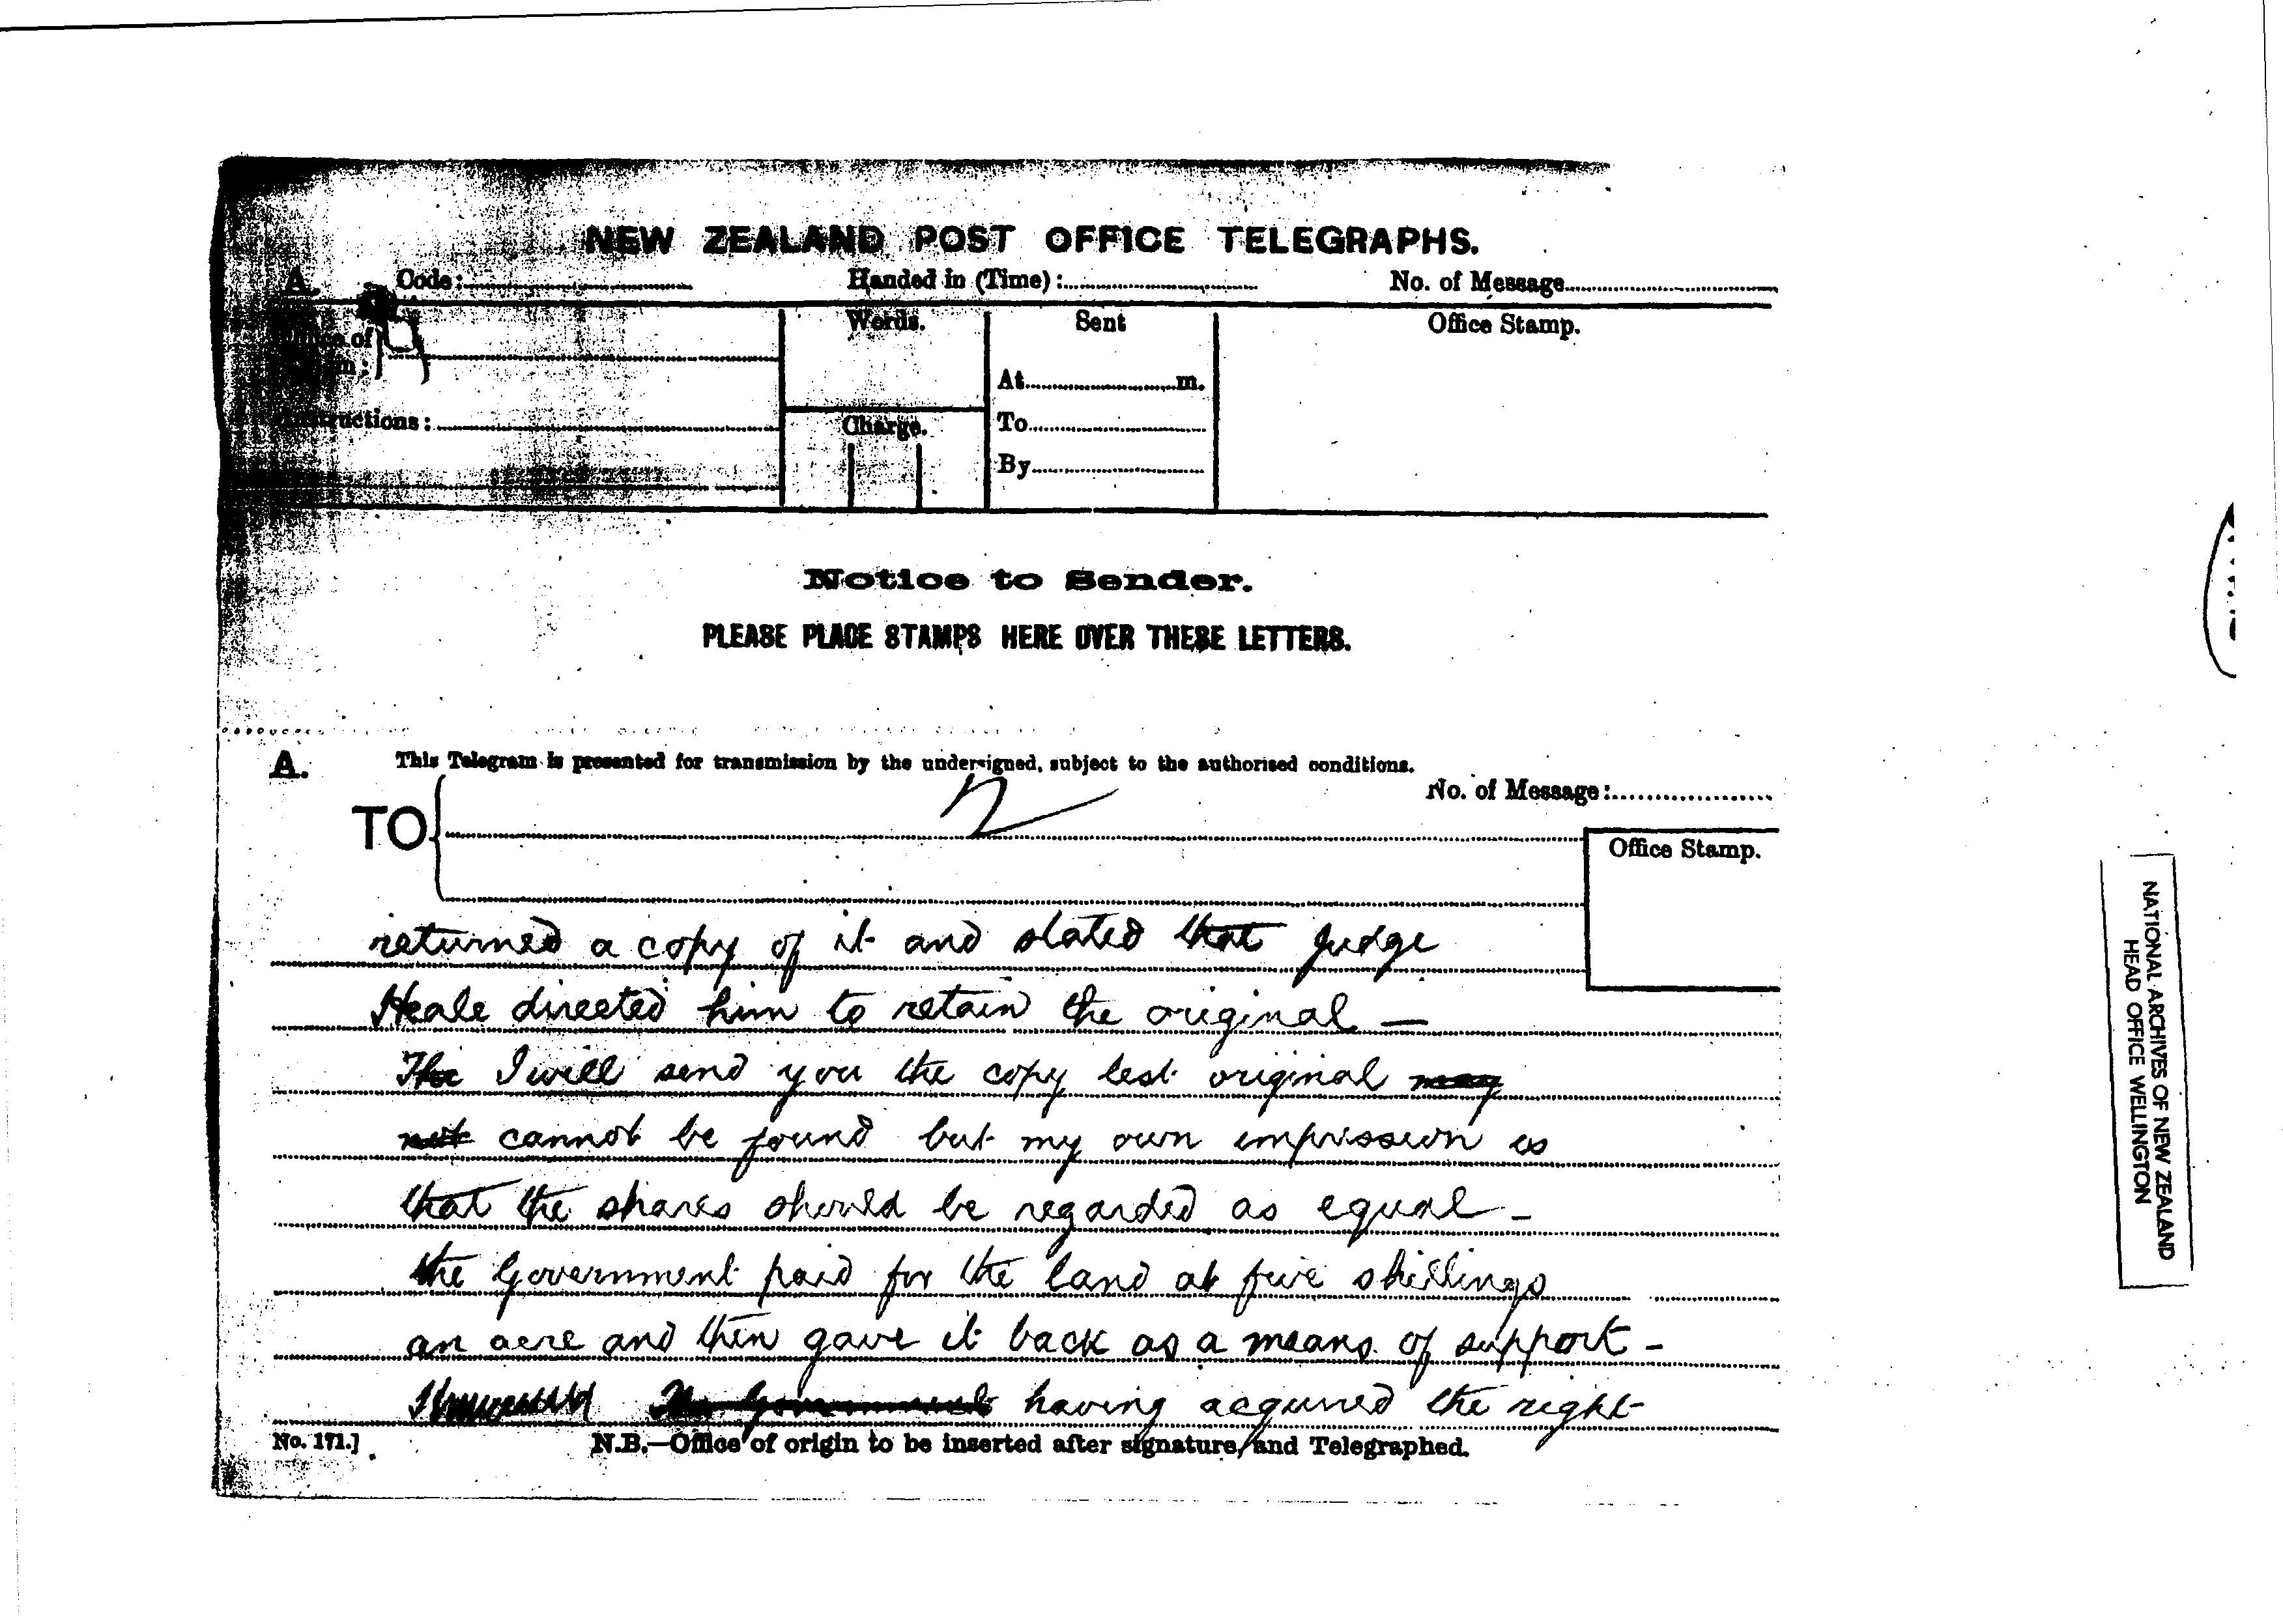 NEW ZEALAND POST OFFICE TELEGRAPHS.
A. Code: Handed in (Time): No. of Message
Words. Sent Office Stamp.
of
At m.
Instructions: Charge. To
By
Notice to Sender.
PLEASE PLACE STAMPS HERE OVER THESE LETTERS.
A. This Telegram is presented for transmission by the undersigned, subject to the authorised conditions.
No. of Message:
TO 2
Office Stamp.
returned a copy of it and stated that Judge
Heale directed him to retain the original —
The I will send you the copy lest original may
not cannot be found but my own impression is
that the shares should be regarded as equal -
the Government paid for the land at five shillings
an acre and then gave it back as a means of support -
The Government having acquired the right
No. 171.] N.B.—Office of origin to be inserted after signature, and Telegraphed.
NATIONAL ARCHIVES OF NEW ZEALAND
HEAD OFFICE WELLINGTON